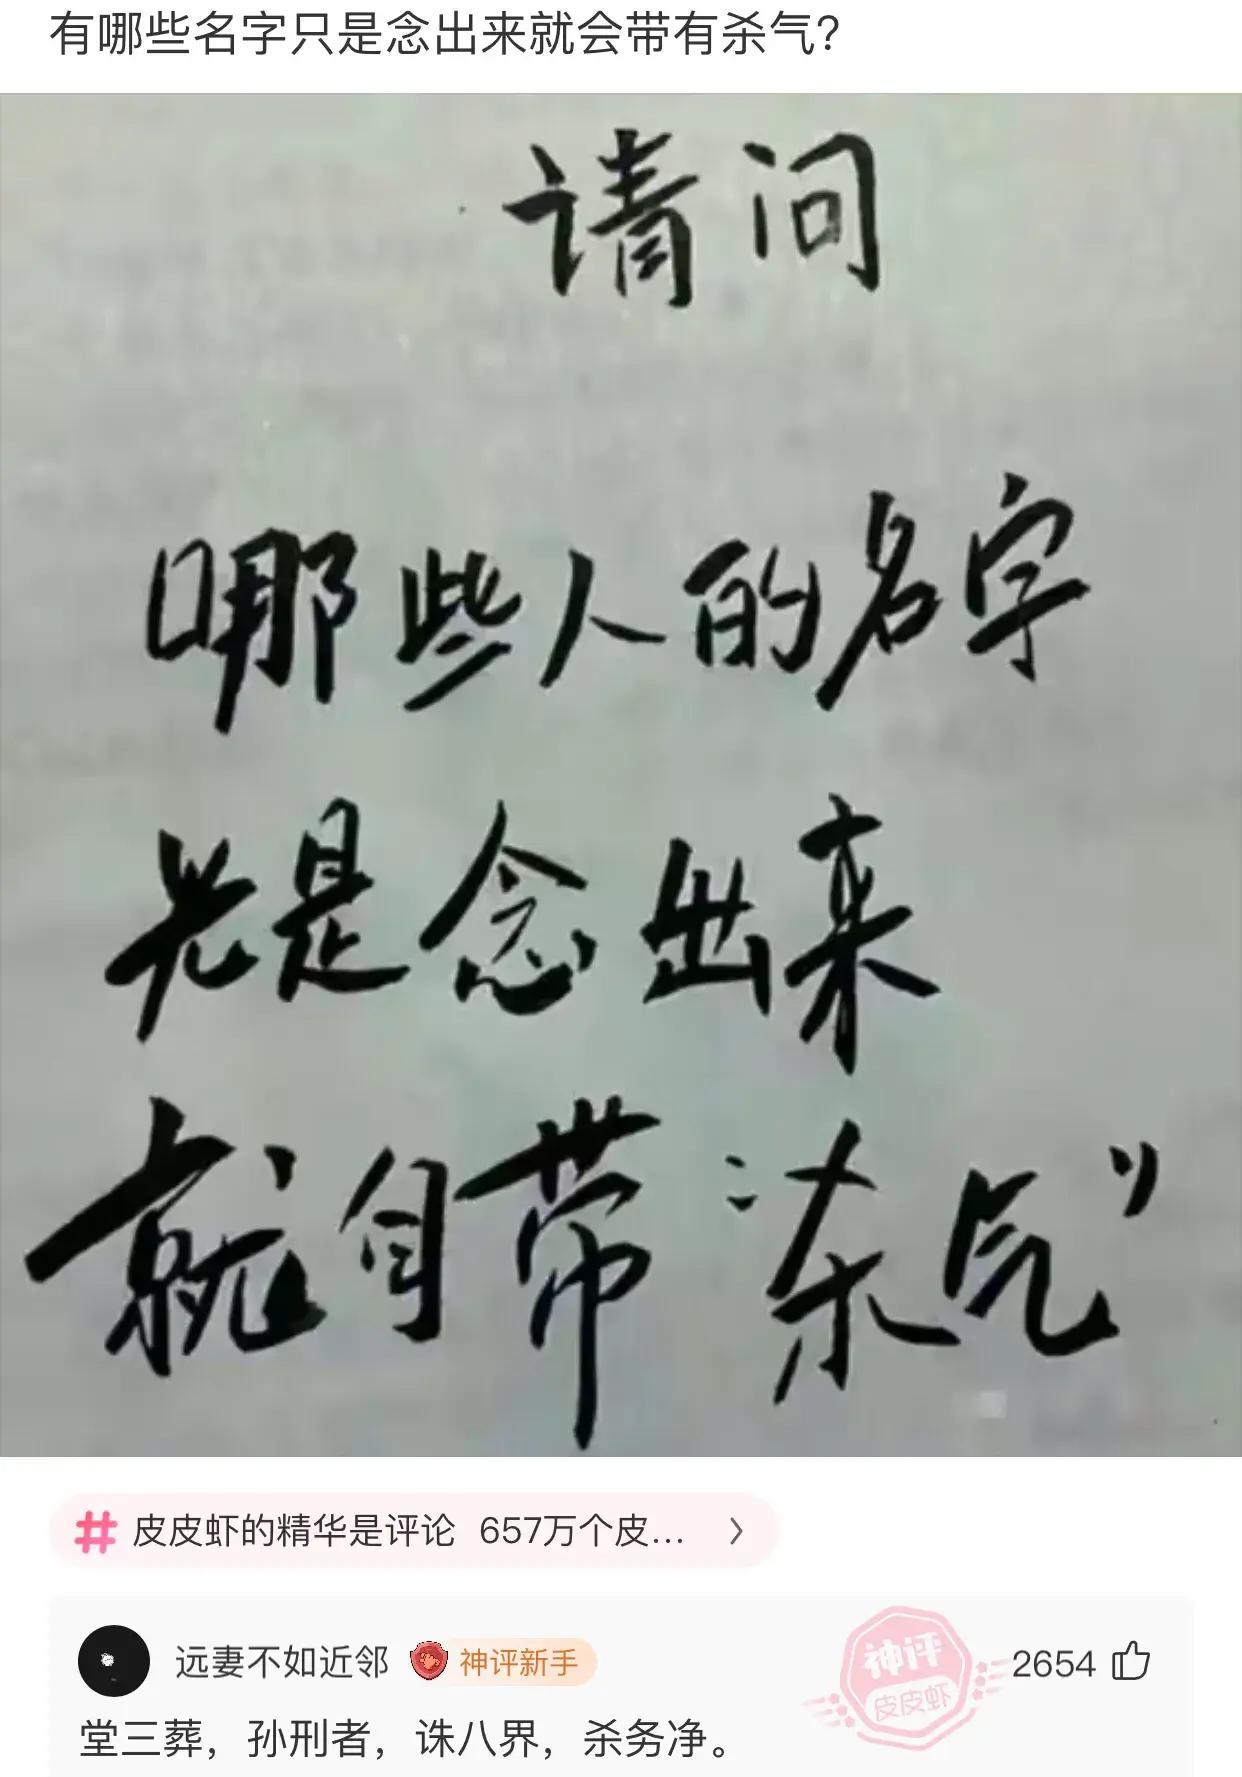 有哪些名字只是念出来就会带有杀气？
请问
哪些人的名字
光是念出来
就自带“杀气”
皮皮虾的精华是评论 657万个皮...
远妻不如近邻 神评新手 神评 皮皮虾 2654
堂三葬，孙刑者，诛八界，杀务净。